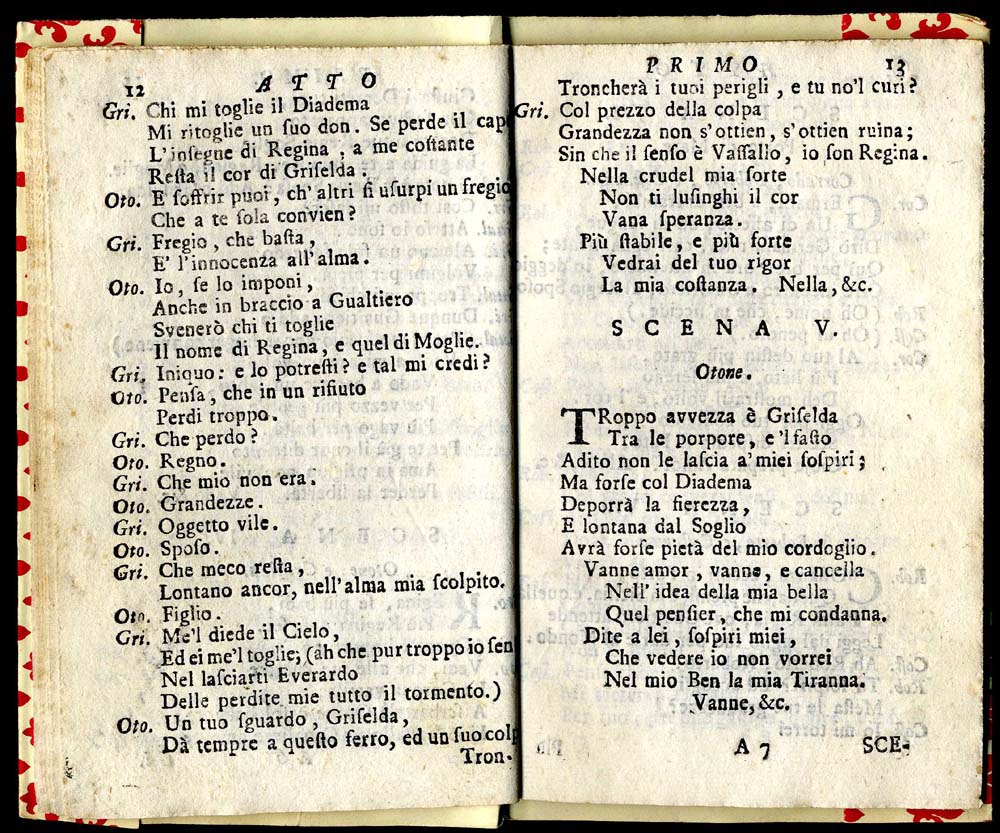 12 ATTO
Gri. Chi mi toglie il Diadema
Mi ritoglie un ſuo don. Se perde il cap
L'inſegne di Regina, a me coſtante
Reſta il cor di Griſelda.
Oto. E ſoffrir puoi, ch' altri ſi uſurpi un fregio
Che a te ſola convien?
Gri. Fregio, che baſta,
E' l'innocenza all'alma.
Oto. Io, ſe lo imponi,
Anche in braccio a Gualtiero
Svenerò chi ti toglie
Il nome di Regina, e quel di Moglie.
Gri. Iniquo: e lo potreſti? e tal mi credi?
Oto. Penſa, che in un rifiuto
Perdi troppo.
Gri. Che perdo?
Oto. Regno.
Gri. Che mio non era.
Oto. Grandezze.
Gri. Oggetto vile.
Oto. Spoſo.
Gri. Che meco reſta,
Lontano ancor, nell'alma mia ſcolpito.
Oto. Figlio.
Gri. Me'l diede il Cielo,
Ed ei me'l toglie; (ah che pur troppo io ſen
Nel laſciarti Everardo
Delle perdite mie tutto il tormento.)
Oto. Un tuo ſguardo, Griſelda,
Dà tempre a queſto ferro, ed un ſuo colp
Tron-
PRIMO 13
Troncherà i tuoi perigli, e tu no'l curi?
Gri. Col prezzo della colpa
Grandezza non s'ottien, s'ottien ruina;
Sin che il ſenſo è Vaſſallo, io ſon Regina.
Nella crudel mia ſorte
Non ti luſinghi il cor
Vana ſperanza.
Più ſtabile, e più forte
Vedrai del tuo rigor
La mia coſtanza. Nella, &c.
SCENA V.
Otone.
TRoppo avvezza è Griſelda
Tra le porpore, e 'l faſto
Adito non le laſcia a' miei ſoſpiri;
Ma forſe col Diadema
Deporrà la fierezza,
E lontana dal Soglio
Avrà forſe pietà del mio cordoglio.
Vanne amor, vanne, e cancella
Nell' idea della mia bella
Quel penſier, che mi condanna.
Dite a lei, ſoſpiri miei,
Che vedere io non vorrei
Nel mio Ben la mia Tiranna.
Vanne, &c.
A 7 SCE-